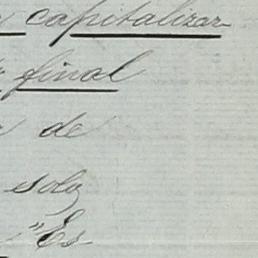 capitalizar
final
de
solo
"Es